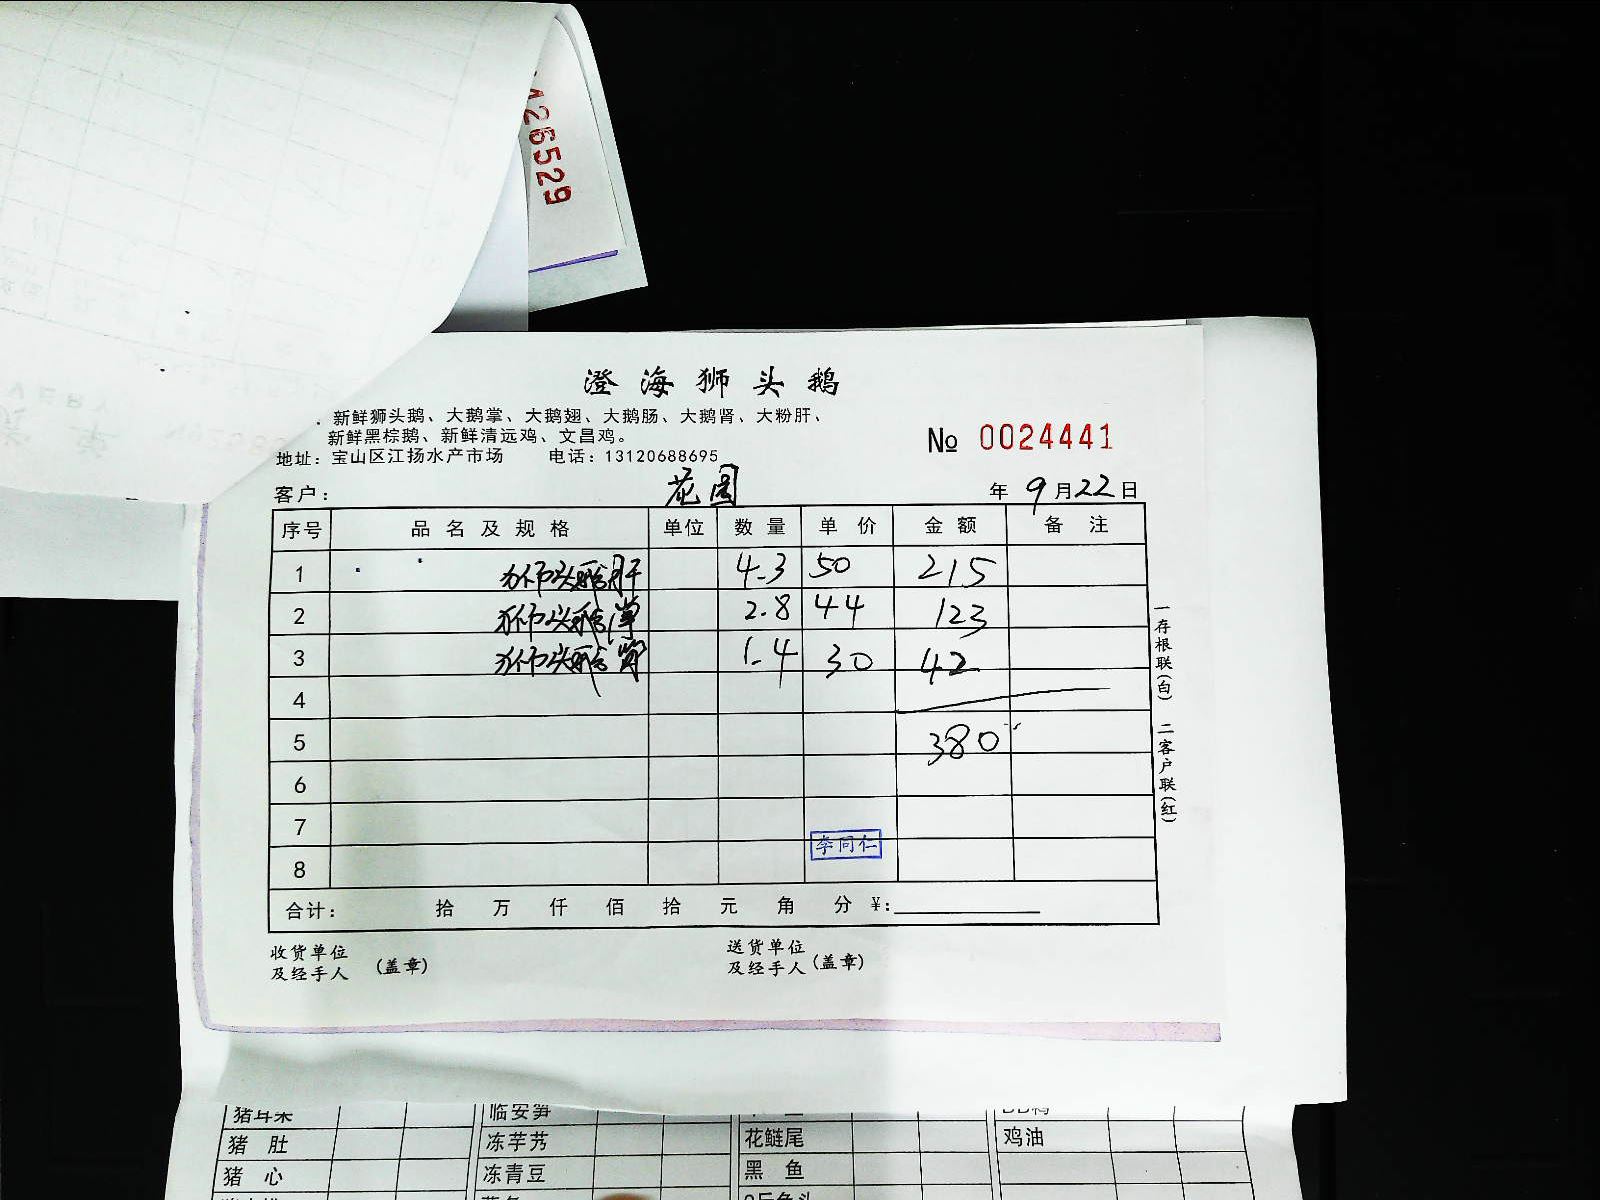 A26529
澄海狮头鹅
新鲜狮头鹅、大鹅掌、大鹅翅、大鹅肠、大鹅肾、大粉肝、
新鲜黑棕鹅、新鲜清远鸡、文昌鸡。
地址：宝山区江扬水产市场 电话：13120688695
№ 0024441
客户： 花园 年 9月22日
序号 品名及规格 单位 数量 单价 金额 备注
1 狮头鹅肝 4.3 50 215
2 狮头鹅掌 2.8 44 123
3 狮头鹅肾 1.4 30 42
4
5 380
6
7
李同仁
8
合计： 拾 万 仟 佰 拾 元 角 分 ¥:
收货单位
及经手人 (盖章)
送货单位
及经手人 (盖章)
一存根联(白) 二客户联(红)
猪耳朵 临安笋
猪肚 冻芋艿 花鲢尾 鸡油
猪心 冻青豆 黑鱼